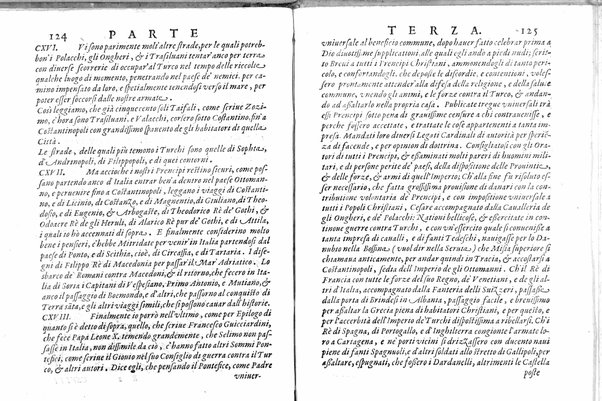 124 PARTE
CXVI. Vi sono parimente molt'altre strade, per le quali potreb-
bon'i Polacchi, gli Ongheri, & i Trasiluani tentar'anco per terra
con diuerse scorrerie di occupar'al Turco nel tempo delle riccolte
qualche luogo di momento, penetrando nel paese de' nemici, per ca-
mino impensato da loro, e spetialmente tenendosi verso il mare, per
poter esser soccorsi dalle nostre armate.
Cosi leggiamo, che già cinquecento soli Taifali, come scriue Zozi-
mo, c'hora sono Trasiluani, e Valacchi, corsero sotto Costantino fin'a
Costantinopoli con grandissimo spauento de gli habitatori di quella
Città.
Le strade, delle quali più temono i Turchi sono quelle di Sophia,
d'Andrinopoli, di Filippopoli, e di quei contorni.
CXVII. Ma accioche i nostri Prencipi restino sicuri, come pos-
sano partendo anco d'Italia entrar ben'a dentro nel paese Ottoman-
no, e peruenire fino a Costantinopoli, leggano i viaggi di Costanti-
no, e di Licinio, di Costanzo, e di Magnentio, di Giuliano, di Theo-
dosio, e di Eugenio, & Arbogaste, di Theodorico Rè de' Gothi, e di
Odoacre Rè de gli Heruli, di Alarico Rè pur de' Gothi, e di Attila,
i quali io hò accennati di sopra. E finalmente considerino molto
bene i pensieri, c'hebbe Mitridate per venir'in Italia partendosi dal
paese di Ponto, e di Scithia, cioè, di Circassia, e di Tartaria. I dise-
gni di Filippo Rè di Macedonia per passar'il Mar'Adriatico. Lo
sbarco de' Romani contro Macedoni, & il ritorno, che fecero in Ita-
lia di Soria i Capitani di Vespesiano, Primo Antonio, e Mutiano, &
anco il passaggio di Boemondo, e d'altri, che passorno al conquisto di
Terra santa, e gli altri viaggi simili, che si possono cauar dall'historie.
CXVIII. Finalmente io porrò nell'vltimo, come per Epilogo di
quanto si è detto di sopra, quello, che scriue Francesco Guicciardini,
che fece Papa Leone X. temendo grandemente, che Selimo non pas-
sasse in Italia, non dissimile da ciò, c'hanno fatto altri Sommi Ponte-
fici, come scriue il Giouio nel suo Consiglio di guerra contro il Tur-
co, & altri autori. Dice egli, che pensando il Pontefice, come Padre
vniuer-
TERZA. 125
vniuersale al beneficio commune, dopo hauer fatto celebrar prima a
Dio diuotissime supplicationi, alle quali egli andò a piedi nudi; scris-
se Breui a tutti i Prencipi Christiani, ammonendogli di tanto peri-
colo, e confortandogli, che deposte le discordie, e contentioni, voles-
sero prontamente attender'alla difesa della religione, e della salute
commune, vnendo gli animi, e le forze contro il Turco, & andan-
do ad assaltarlo nella propria casa. Publicate tregue vniuersali trà
essi Prencipi sotto pena di grauissime censure a chi contrauenisse, e
perche fossero accettate, e trattate le cose appartenenti a tanta im-
presa. Mandò diuersi Legati Cardinali di autorità per isperien-
za di facende, e per opinion di dottrina. Consigliatosi con gli Ora-
tori di tutti i Prencipi, & essaminati molti pareri di huomini mili-
tari, e di persone perite de' paesi, della dispositione delle Prouincie,
& delle forze, & armi di quell'Imperio; Ch'alla fine fù risoluto es-
ser necessario, che fatta grossissima prouisione di danari con la con-
tributione voluntaria de' Prencipi, e con impositione vniuersale a
tutti i Popoli Christiani. Cesare accompagnato dalla Caualleria de
gli Ongheri, e de' Polacchi: Nationi bellicose, & essercitate in con-
tinue guerre co' Turchi, e con vn'essercito quale si conuenisse a
tanta impresa di caualli, e di fanti Tedeschi, nauigasse per lo Da-
nubio nella Bossina (vuol dir nella Seruia) che Misia superiore si
chiamò anticamente, per andar quindi in Tracia, & accostarsi a
Costantinopoli, sedia dell'Imperio de gli Ottomanni. Ch'il Rè di
Francia con tutte le forze del suo Regno, de' Venetiani, e de gli al-
tri d'Italia, accompagnato dalla Fanteria delli Suizzeri, passasse
dalla porta di Brindesi in Albania, passaggio facile, e breuissimo
per assaltar la Grecia piena di habitatori Christiani, e per quello, e
per l'accerbità dell'Imperio de' Turchi dispostissima a ribellarsi. Ch'i
Rè di Spagna, di Portogallo, e d'Inghilterra congionte l'armate lo-
ro a Cartagena, e ne' porti vicini si drizzassero con ducento naui
piene di fanti Spagnuoli, e d'altri soldati allo stretto di Gallipoli, per
assaltare, espugnati, che fossero i Dardanelli, altrimenti le Castella
poste